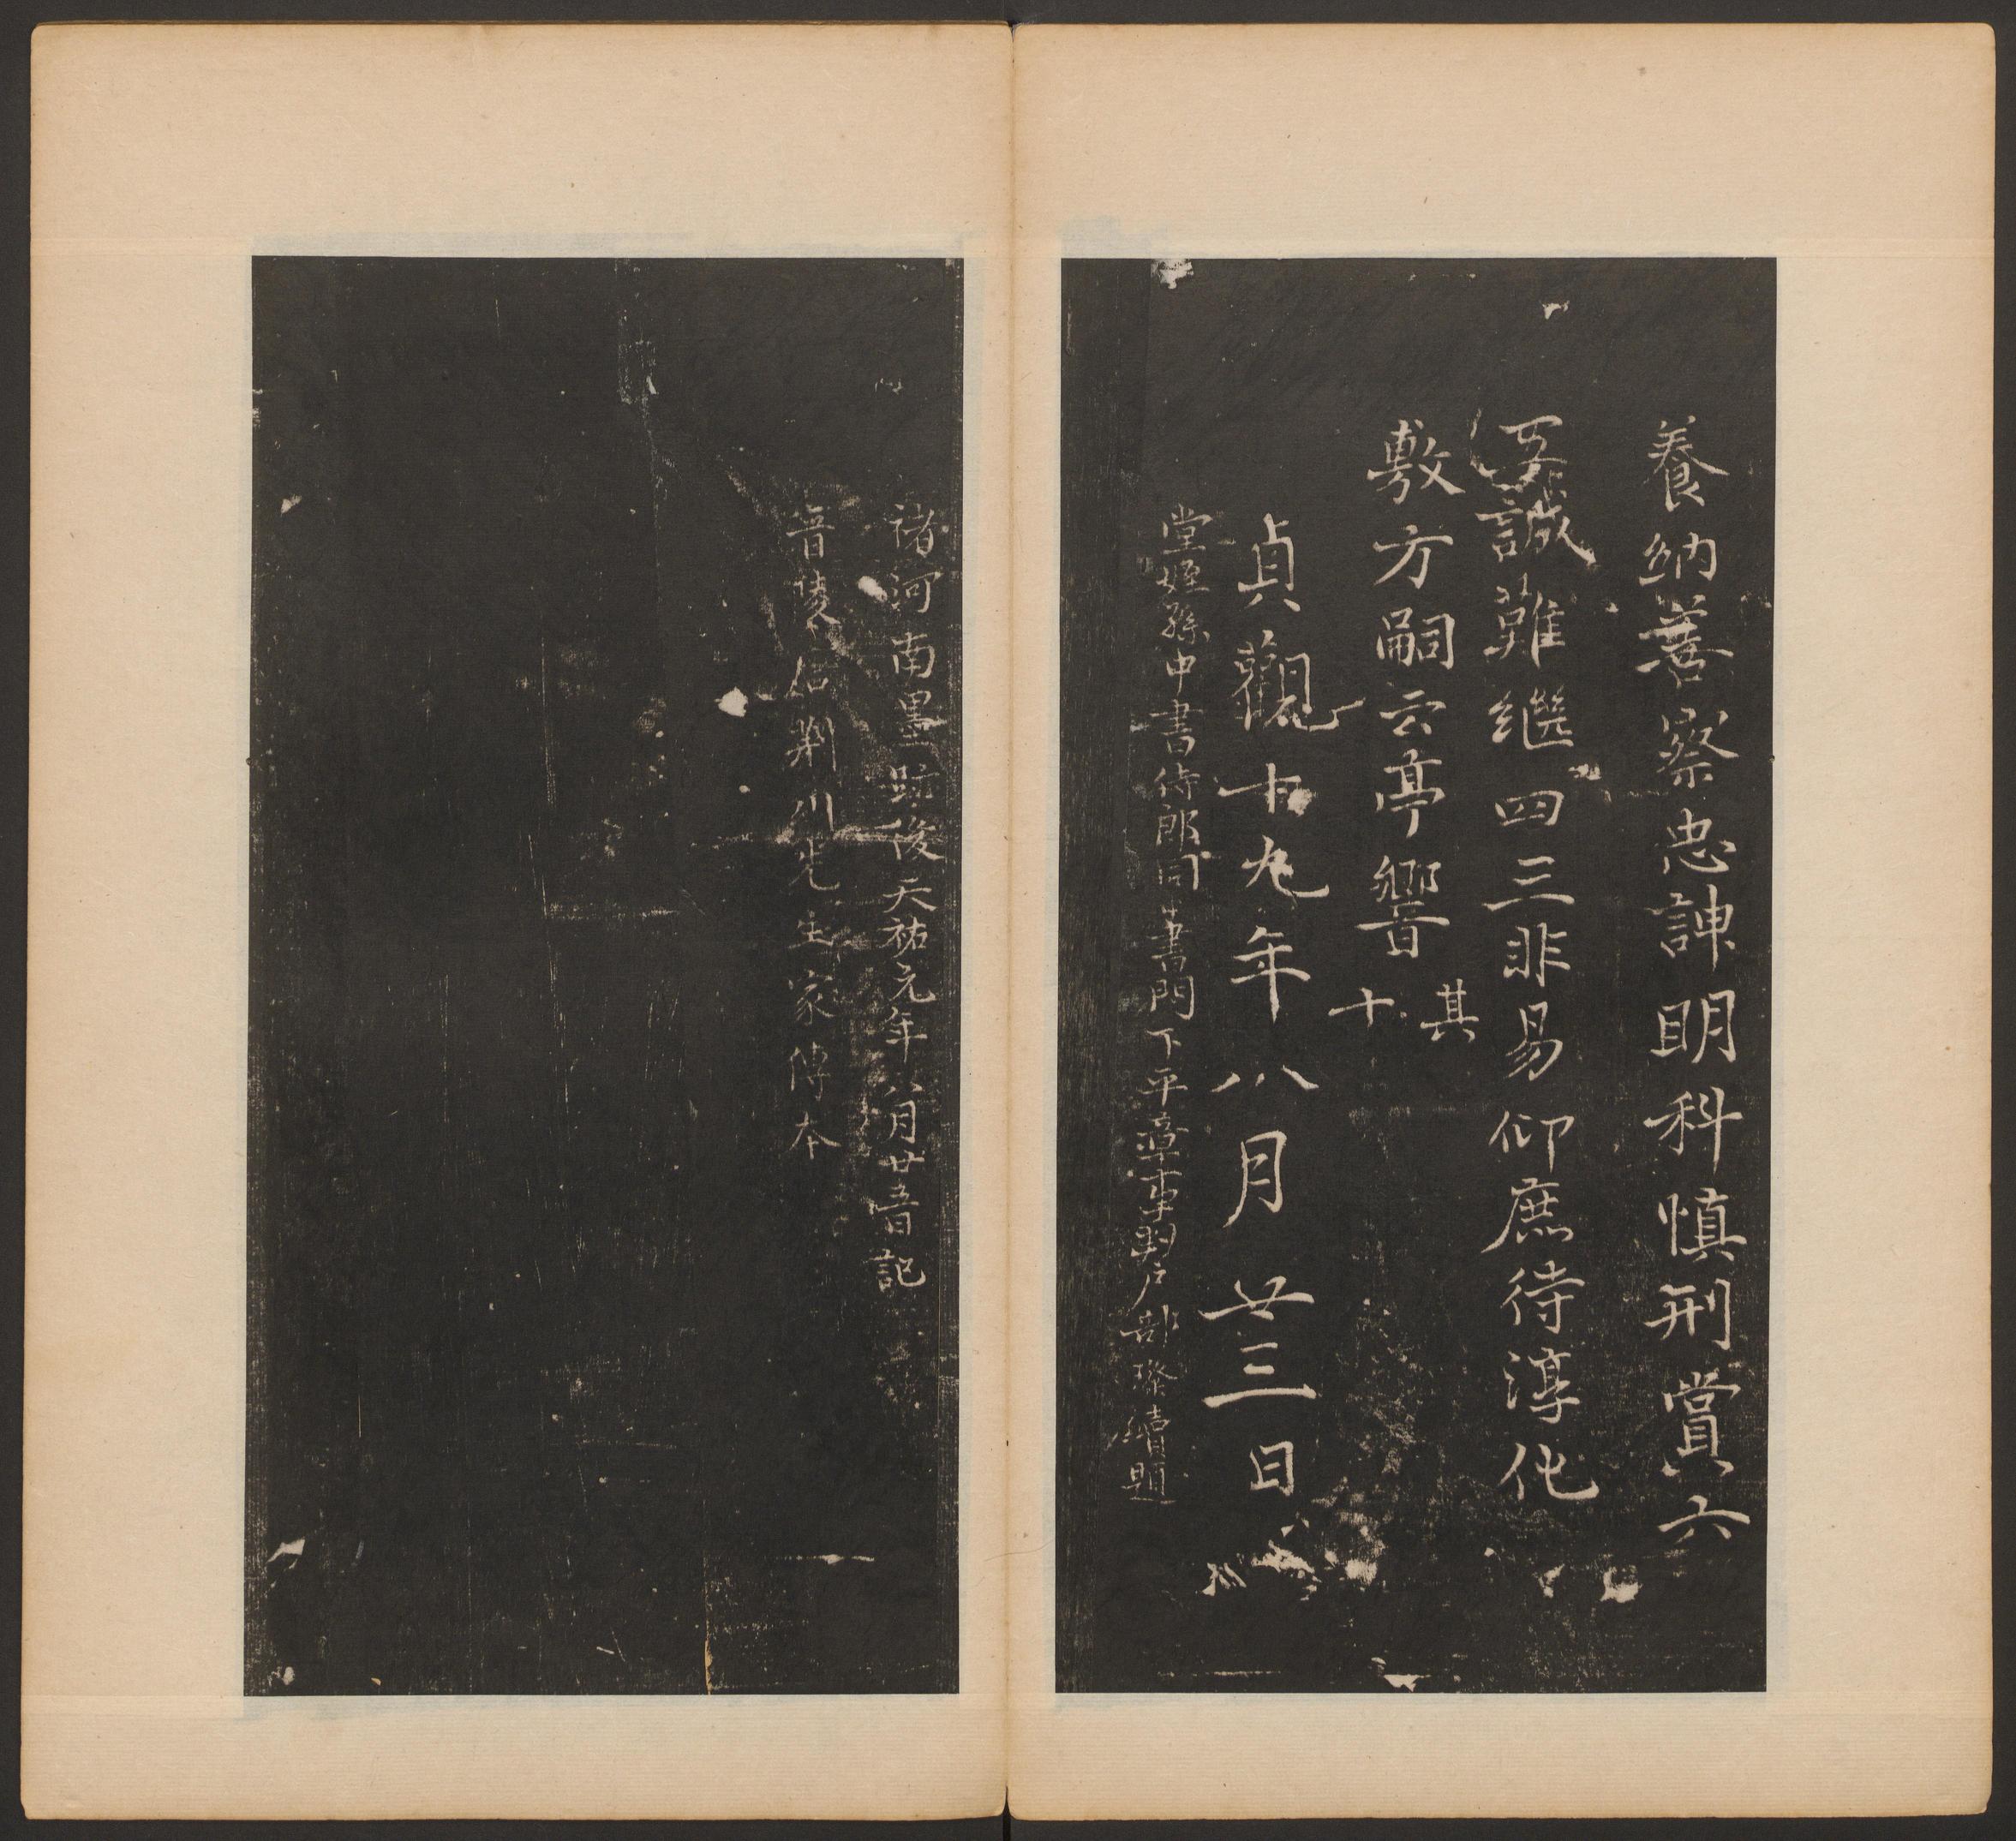 養納善察忠諌明科慎刑賞六
五誡難継四三非易仰庶待淳化
敷方嗣云亭響其十
貞觀十九年八月廿三日
堂姪孫中書侍郎同書門下平章事判戶部璨續題
褚河南墨跡後天祐元年八月廿五日記
晉陵唐荆川先生家傳本